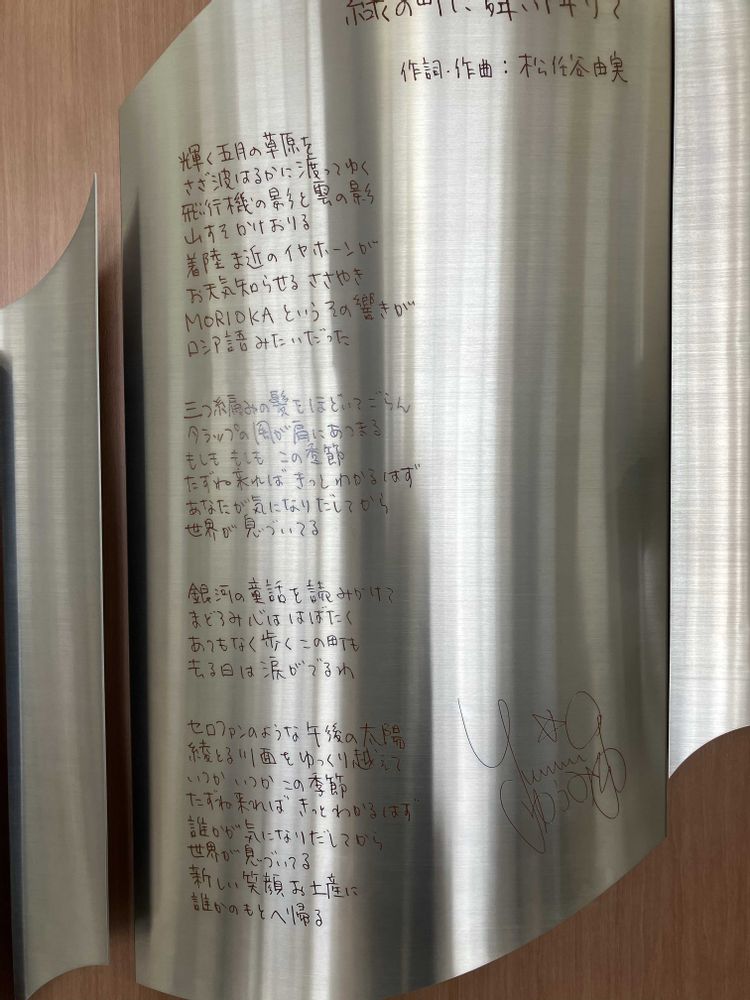 緑の町に舞い降りて
作詞・作曲：松任谷由実
輝く五月の草原を
さざ波はるかに渡ってゆく
飛行機の影と雲の影
山すそかけおりる
着陸ま近のイヤホーンが
お天気知らせるささやき
MORIOKAというその響きが
ロシア語みたいだった
三つ編みの髪をほどいてごらん
タラップの風が肩にあつまる
もしも もしも この季節
たずね来れば きっとわかるはず
あなたが気になりだしてから
世界が息づいてる
銀河の童話を読みかけて
まどろみ心ははばたく
あてもなく歩くこの町も
去る日は涙がでるわ
セロファンのような午後の太陽
綾とる川面をゆっくり越えて
いつか いつか この季節
たずね来れば きっとわかるはず
誰かが気になりだしてから
世界が息づいてる
新しい笑顔お土産に
誰かのもとへ帰る